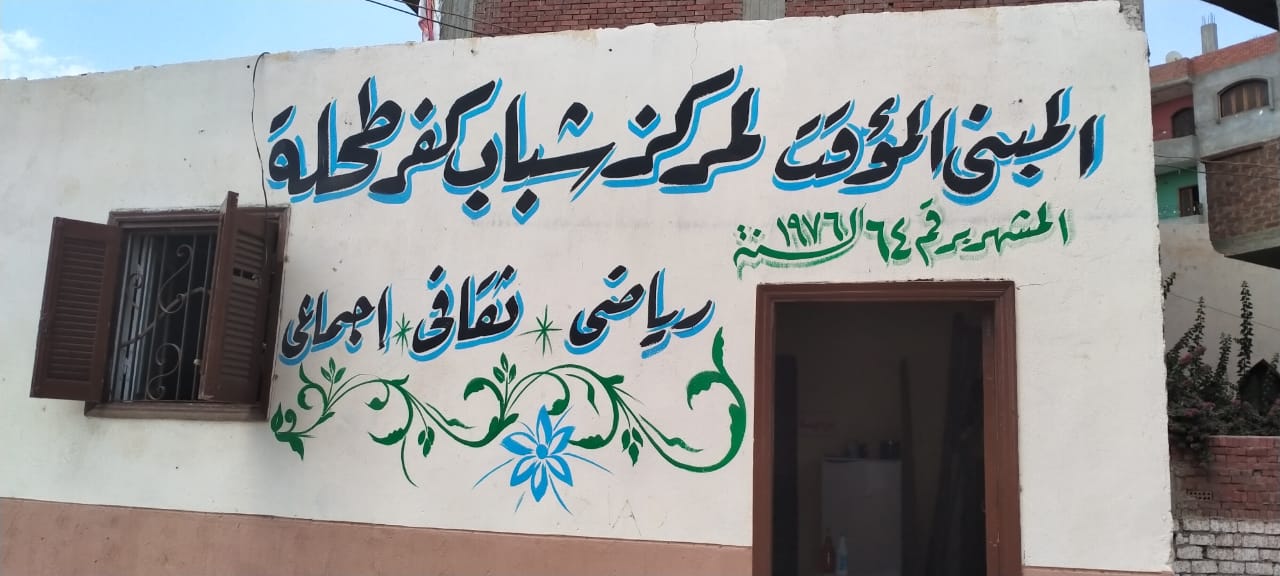 المبنى المؤقت لمركز شباب كفر طحلة
المشهر برقم ٦٤ لسنة ١٩٧٦
رياضى * ثقافى * اجماعى